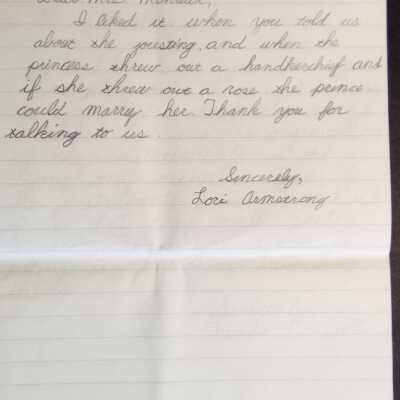 Dear Mrs.
I liked it when you told us
about the jousting, and when the
princess threw out a handkerchief and
if she threw out a rose the prince
could marry her. Thank you for
talking to us.
Sincerely,
Lori Armstrong